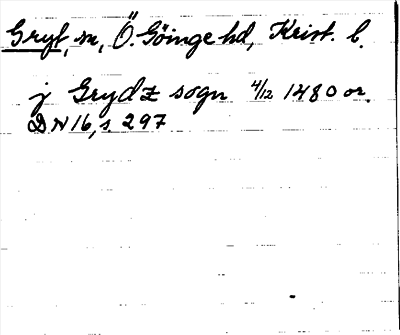 Gryt, sn, Ö. Göinge hd, Krist. l.
j Grydz sogn 4/12 1480 or.
DN 16, s 297